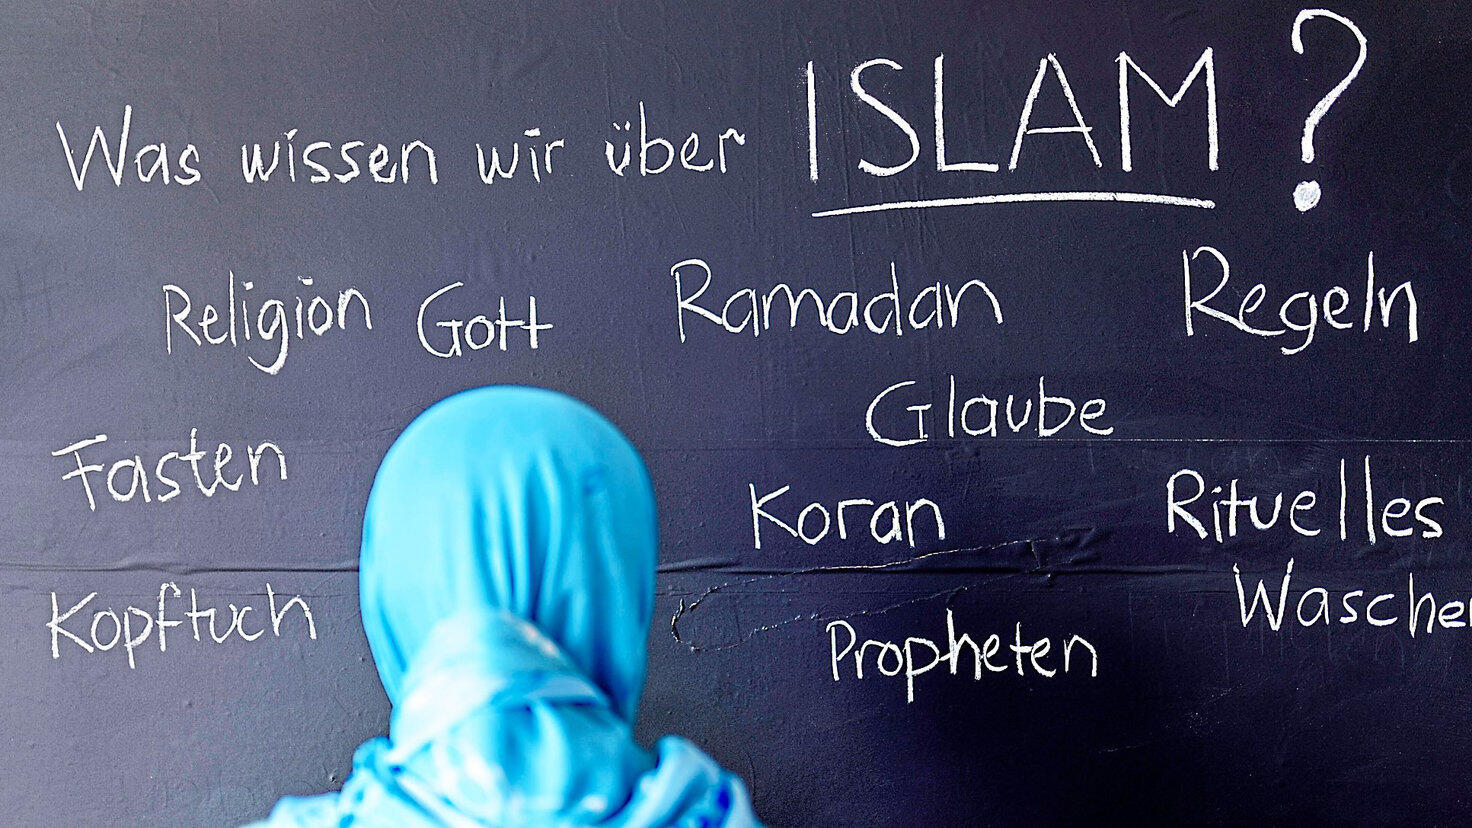 Was wissen wir über ISLAM?
Religion Gott Ramadan Regeln
Glaube
Fasten
Koran
Rituelles
Kopftuch
Waschen
Propheten